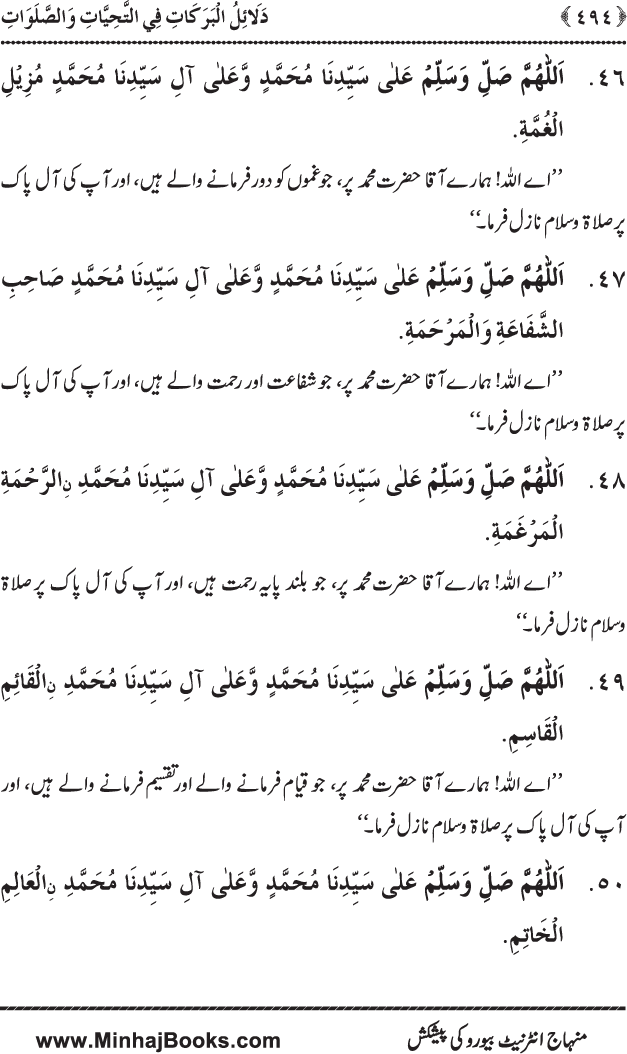 ﴿٤٩٤﴾ دَلَائِلُ الْبَرَكَاتِ فِي التَّحِيَّاتِ وَالصَّلَوَاتِ
٤٦. اَللّٰهُمَّ صَلِّ وَسَلِّمْ عَلٰى سَيِّدِنَا مُحَمَّدٍ وَّعَلٰى آلِ سَيِّدِنَا مُحَمَّدٍ مُزِيْلِ
الْغُمَّةِ.
’’اے اللہ! ہمارے آقا حضرت محمد پر، جو غموں کو دور فرمانے والے ہیں، اور آپ کی آل پاک
پر صلاۃ وسلام نازل فرما۔‘‘
٤٧. اَللّٰهُمَّ صَلِّ وَسَلِّمْ عَلٰى سَيِّدِنَا مُحَمَّدٍ وَّعَلٰى آلِ سَيِّدِنَا مُحَمَّدٍ صَاحِبِ
الشَّفَاعَةِ وَالْمَرْحَمَةِ.
’’اے اللہ! ہمارے آقا حضرت محمد پر، جو شفاعت اور رحمت والے ہیں، اور آپ کی آل پاک
پر صلاۃ وسلام نازل فرما۔‘‘
٤٨. اَللّٰهُمَّ صَلِّ وَسَلِّمْ عَلٰى سَيِّدِنَا مُحَمَّدٍ وَّعَلٰى آلِ سَيِّدِنَا مُحَمَّدِ نِ الرَّحْمَةِ
الْمَرْغَمَةِ.
’’اے اللہ! ہمارے آقا حضرت محمد پر، جو بلند پایہ رحمت ہیں، اور آپ کی آل پاک پر صلاۃ
وسلام نازل فرما۔‘‘
٤٩. اَللّٰهُمَّ صَلِّ وَسَلِّمْ عَلٰى سَيِّدِنَا مُحَمَّدٍ وَّعَلٰى آلِ سَيِّدِنَا مُحَمَّدِ نِ الْقَائِمِ
الْقَاسِمِ.
’’اے اللہ! ہمارے آقا حضرت محمد پر، جو قیام فرمانے والے اور تقسیم فرمانے والے ہیں، اور
آپ کی آل پاک پر صلاۃ وسلام نازل فرما۔‘‘
٥٠. اَللّٰهُمَّ صَلِّ وَسَلِّمْ عَلٰى سَيِّدِنَا مُحَمَّدٍ وَّعَلٰى آلِ سَيِّدِنَا مُحَمَّدِ نِ الْعَالِمِ
الْخَاتِمِ.
منہاج انٹرنیٹ بیورو کی پیشکش www.MinhajBooks.com